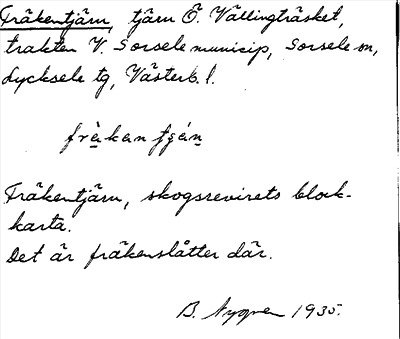 Fräkentjärn, tjärn Ö. Vällingträsket,
trakten V. Sorsele municip, Sorsele sn,
Lycksele tg, Västerb. l.
fräkan
Fräkentjärn, skogsrevirets block-
karta.
Det är fräkenslåtter där.
B. Nygren 1935.